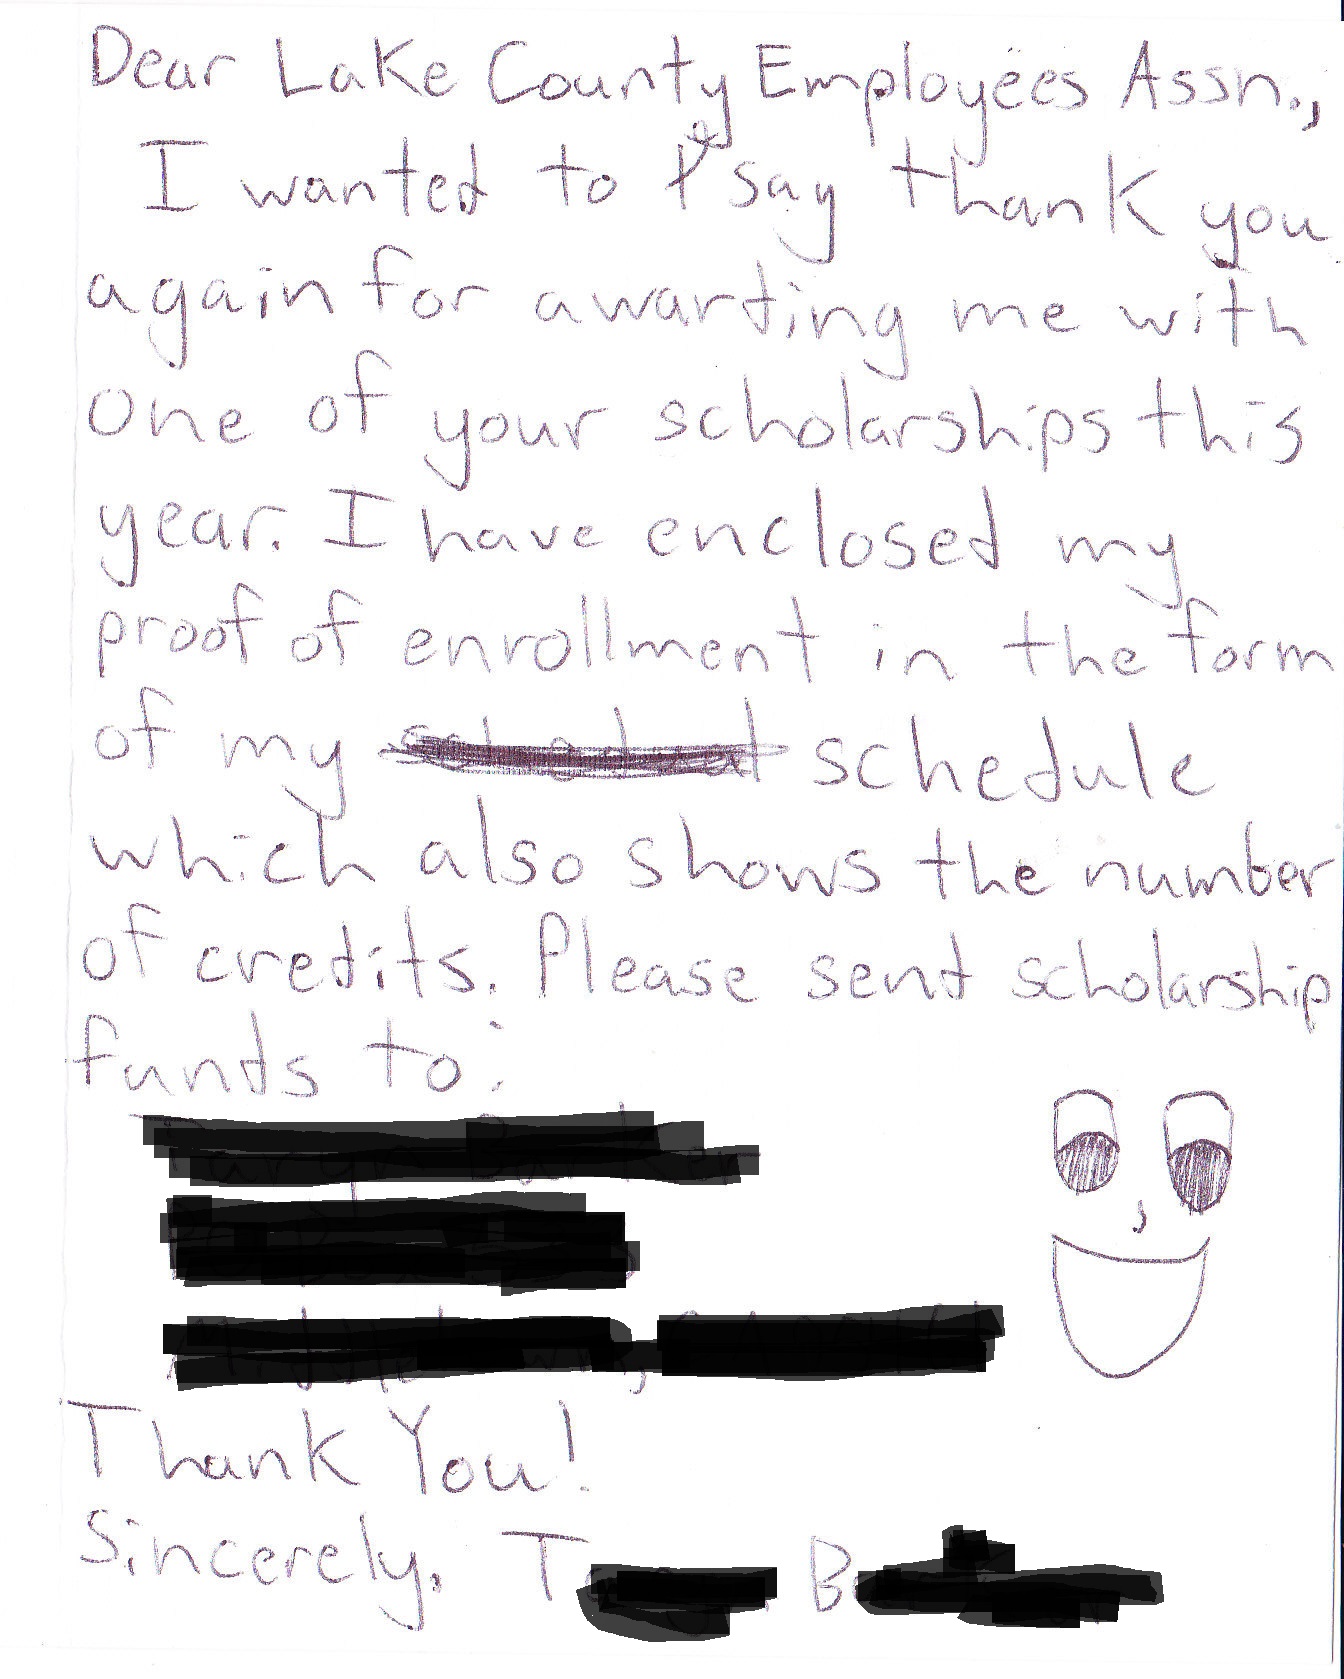 Dear Lake County Employees Assn.,
I wanted to say thank you
again for awarting me with
one of your scholarships this
year. I have enclosed my
proof of enrollment in the form
of my schedule
which also shows the number
of credits. Please sent scholarship
funds to:
Thank You!
Sincerely, T B